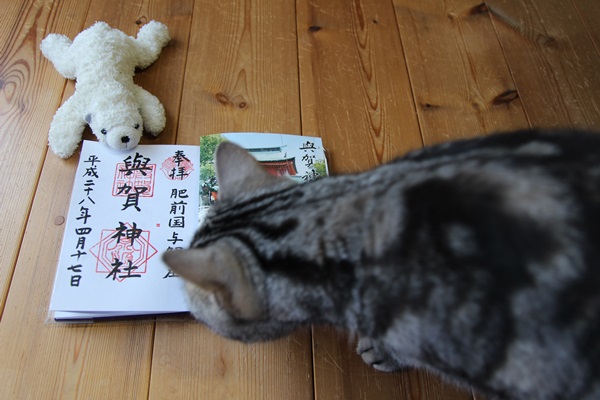 奉拝 肥前国与賀
與賀神社
平成二十八年四月十七日
與賀神